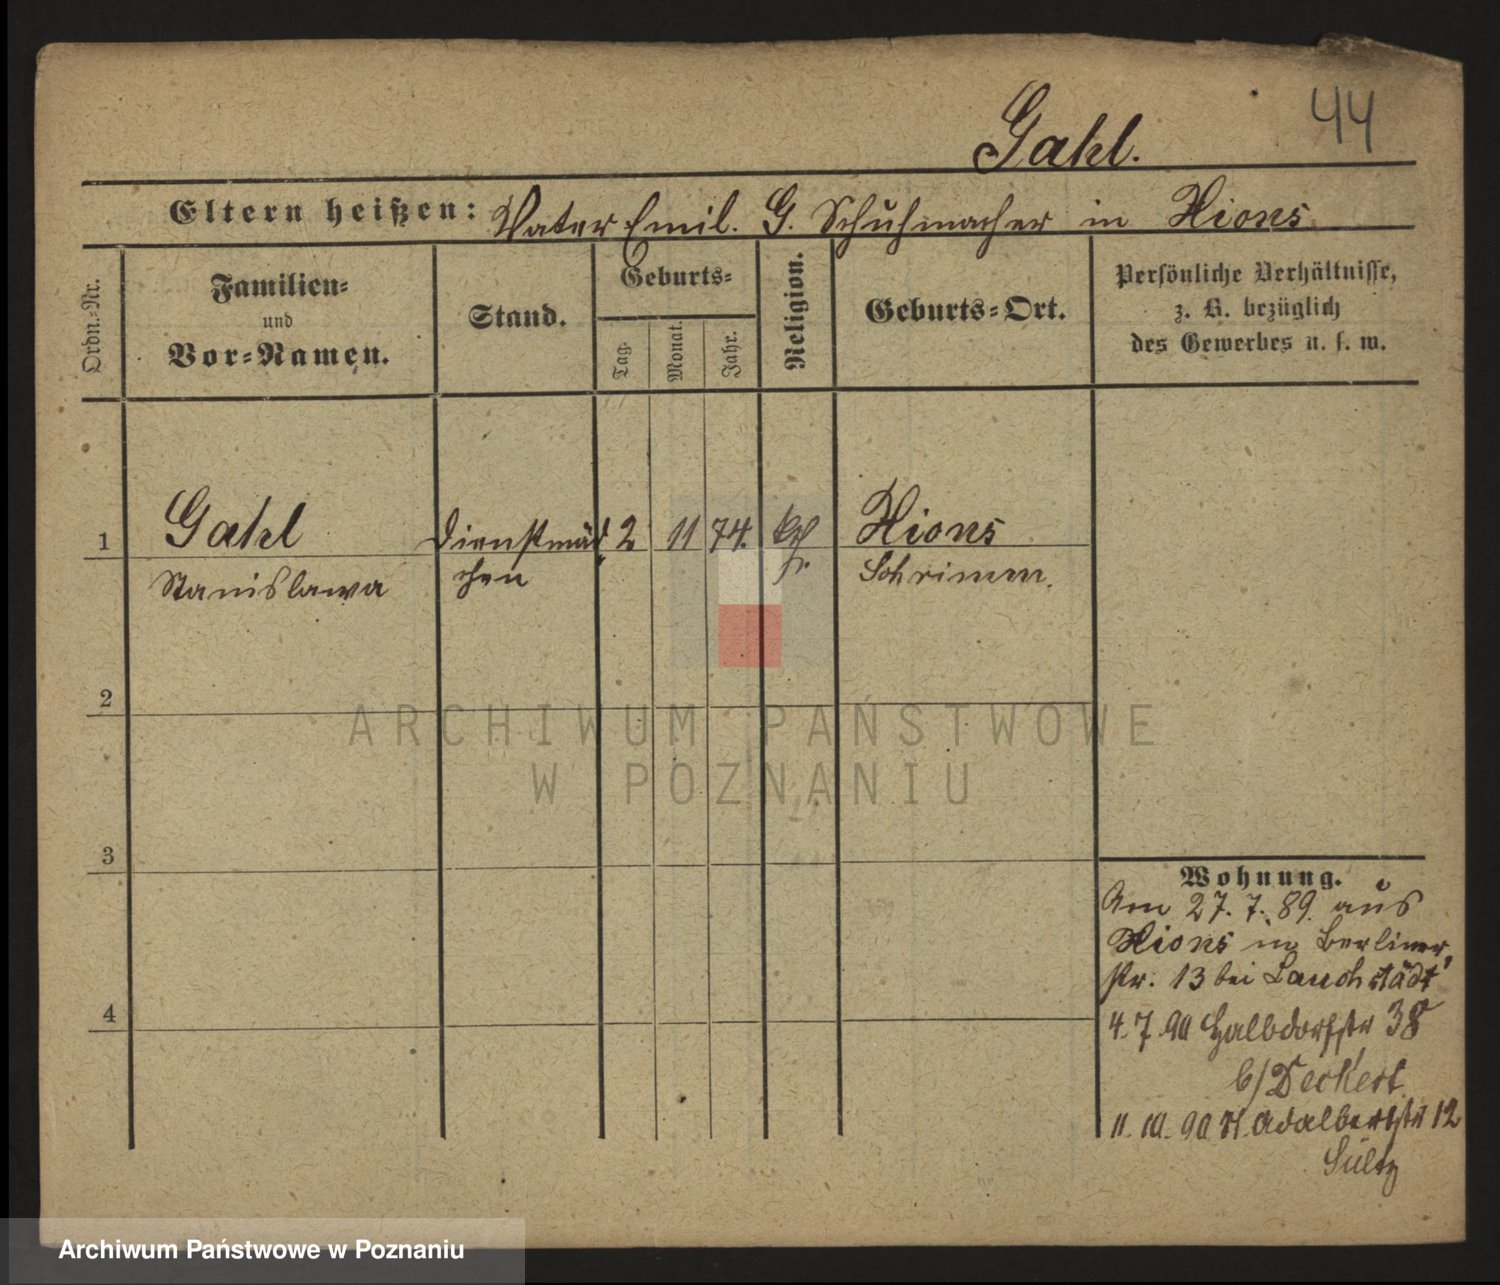 44
Gahl.
Eltern heißen: Vater Emil. G. Schuhmacher in Xions
Ordn.-Nr.
Familien-
und
Vor-Namen.
Stand.
Geburts-
Tag.
Monat.
Jahr.
Religion.
Geburts-Ort.
Persönliche Verhältnisse,
z. B. bezüglich
des Gewerbes u. s. w.
1 Gahl Dienstmäd 2 11 74. kth Xions
Stanislawa chen Schrimm.
2
3
4
Wohnung.
Am 27. 7. 89. aus
Xions in Berliner
str. 13 bei Lauchstädt
4. 7. 90 Halbdorfstr 38
b/ Deckert
11. 10. 90 Kl. Adalbertstr 12
Sültz
ARCHIWUM PAŃSTWOWE
W POZNANIU
Archiwum Państwowe w Poznaniu